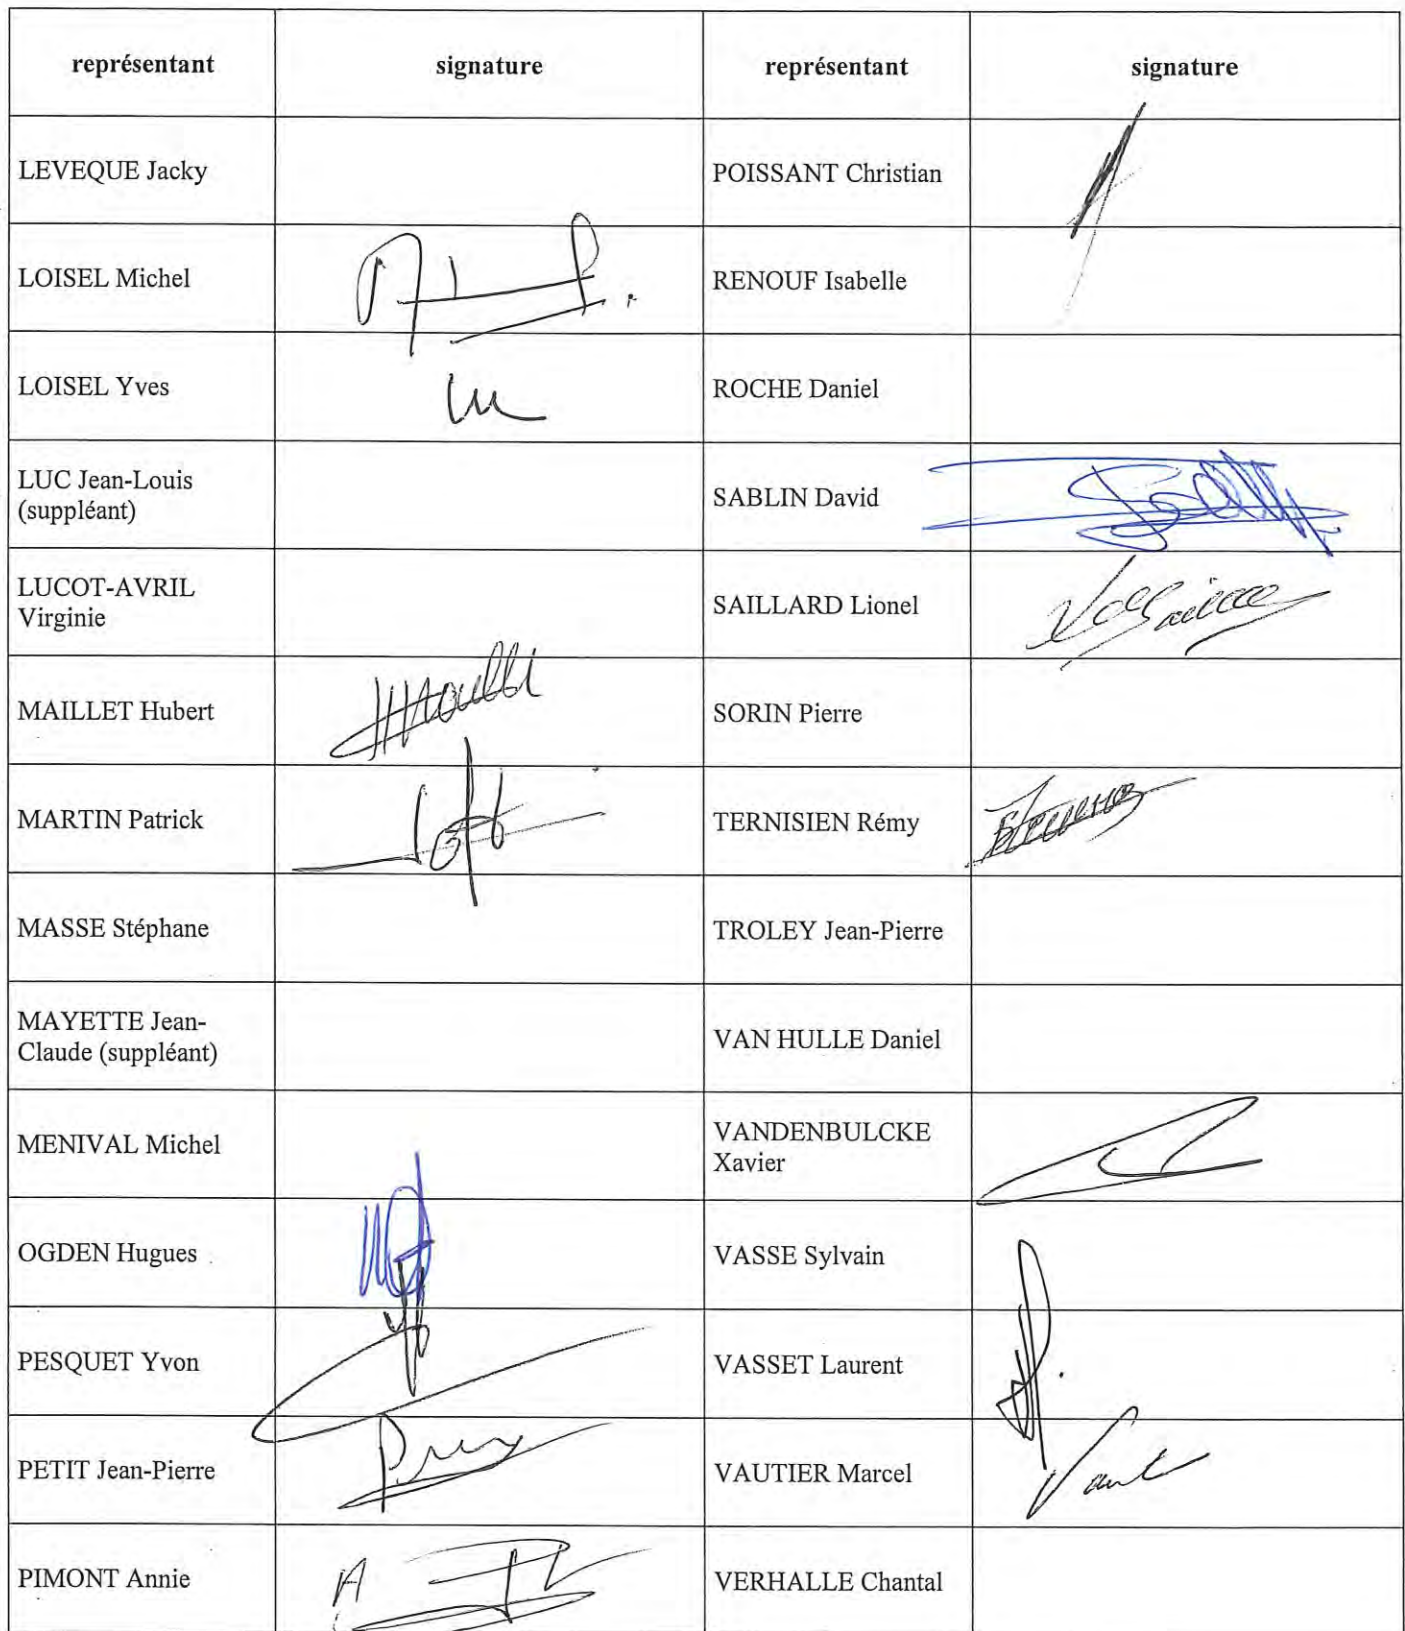 représentant signature représentant signature
LEVEQUE Jacky POISSANT Christian
LOISEL Michel RENOUF Isabelle
LOISEL Yves ROCHE Daniel
LUC Jean-Louis
(suppléant) SABLIN David
LUCOT-AVRIL
Virginie SAILLARD Lionel
MAILLET Hubert SORIN Pierre
MARTIN Patrick TERNISIEN Rémy
MASSE Stéphane TROLEY Jean-Pierre
MAYETTE Jean-
Claude (suppléant) VAN HULLE Daniel
MENIVAL Michel VANDENBULCKE
Xavier
OGDEN Hugues VASSE Sylvain
PESQUET Yvon VASSET Laurent
PETIT Jean-Pierre VAUTIER Marcel
PIMONT Annie VERHALLE Chantal